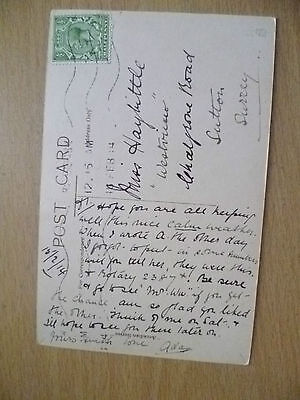 POST CARD
Address Only
12.15 PM
FEB 14
Miss Hayhittle
"Westview"
Chalgrove Road
Sutton
Surrey
Hope you are all keeping
well this nice calm weather.
When I wrote A the other day
I forgot to put in some numbers
will you tell her, they were this
& Rotary 2287 H. Be sure
& go to see "Mr Wu" if you get
the chance am so glad you liked
the other. Think of me on Sat. &
I'll hope to see you there later on.
love Ada